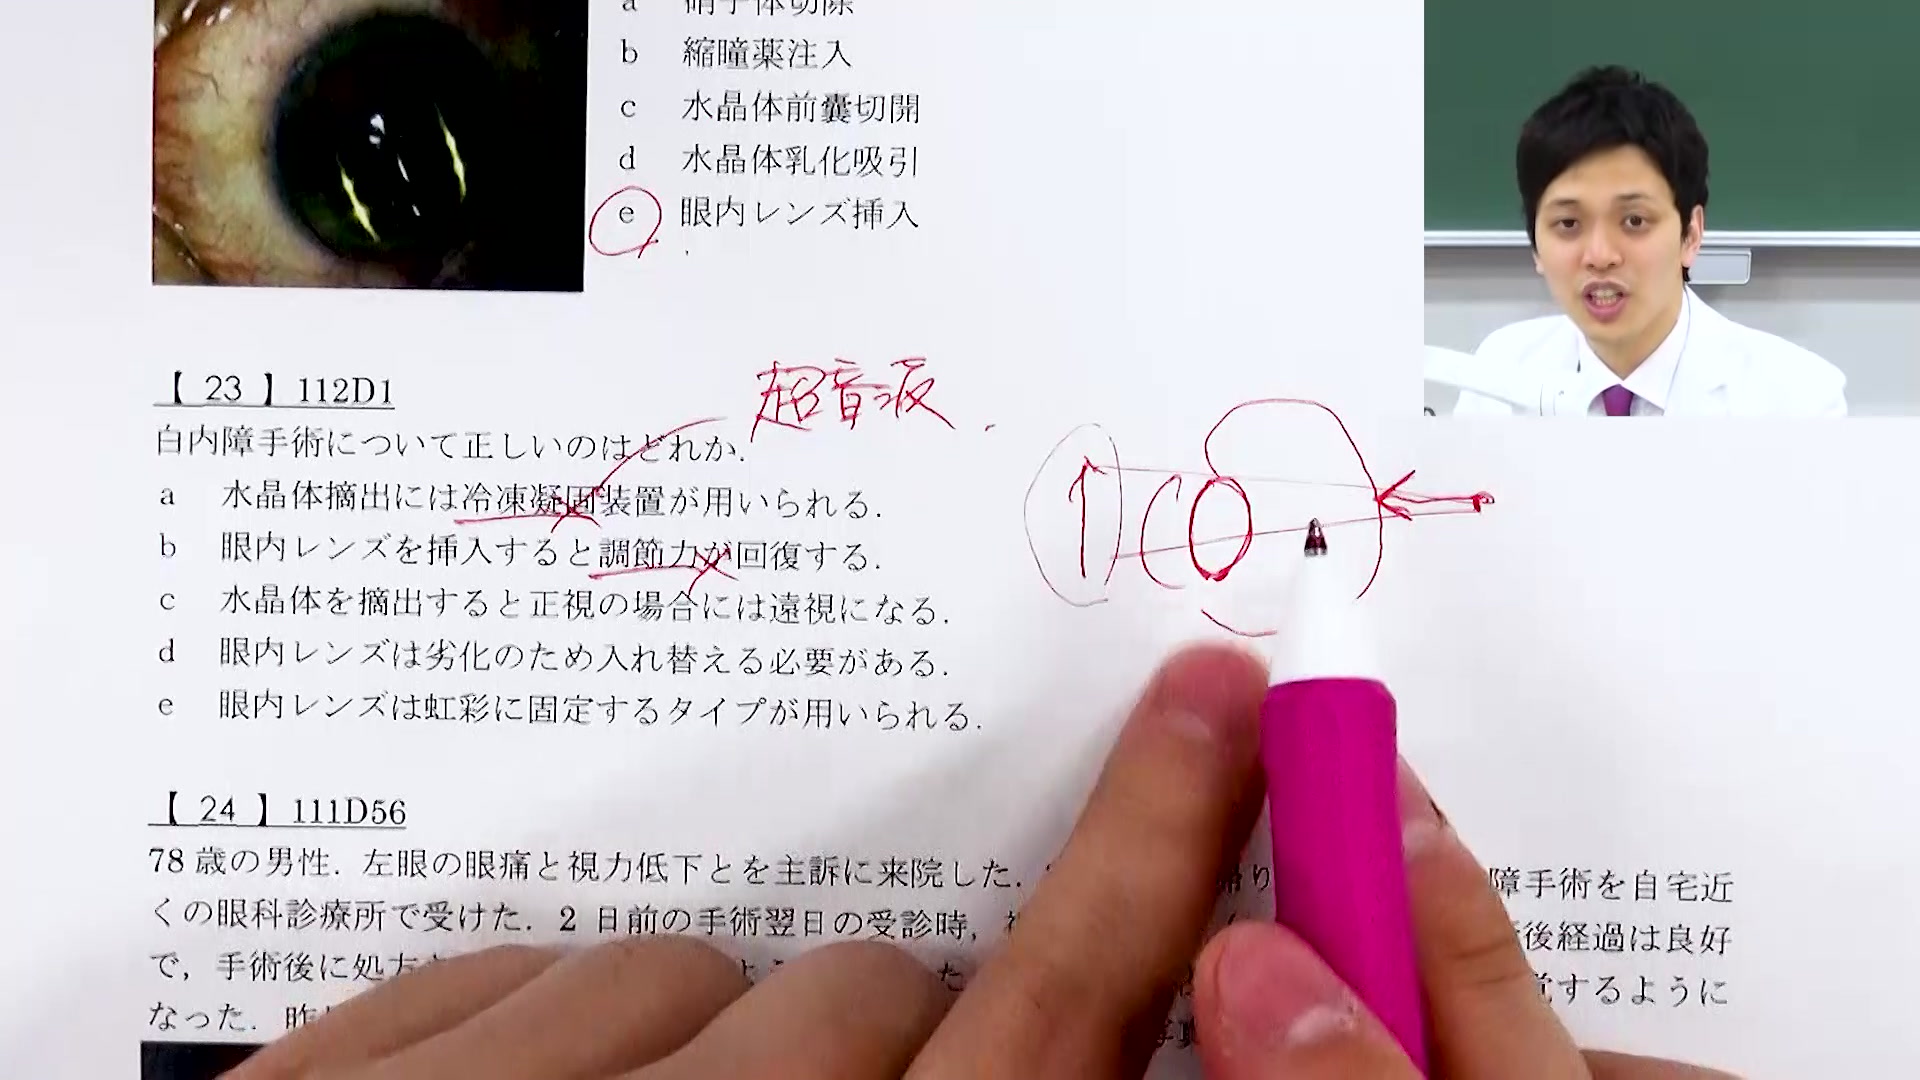 a 硝子体切除
b 縮瞳薬注入
c 水晶体前嚢切開
d 水晶体乳化吸引
e 眼内レンズ挿入
超音波
【 23 】 112D1
白内障手術について正しいのはどれか.
a 水晶体摘出には冷凍凝固装置が用いられる.
b 眼内レンズを挿入すると調節力が回復する.
c 水晶体を摘出すると正視の場合には遠視になる.
d 眼内レンズは劣化のため入れ替える必要がある.
e 眼内レンズは虹彩に固定するタイプが用いられる.
【 24 】 111D56
78 歳の男性. 左眼の眼痛と視力低下とを主訴に来院した. 障手術を自宅近
くの眼科診療所で受けた. 2 日前の手術翌日の受診時, 後経過は良好
で, 手術後に処方 た 覚するように
なった. 昨